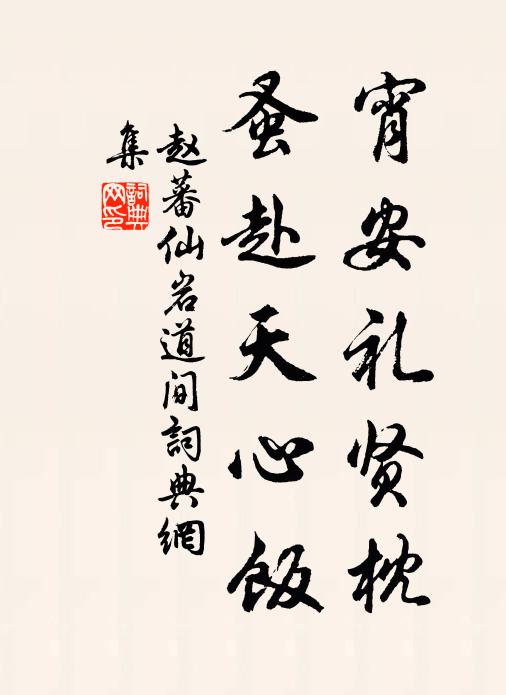 宵安礼贤枕
蚤赴天心饭
赵蕃仙岩道间詞典網
集
詞典网印